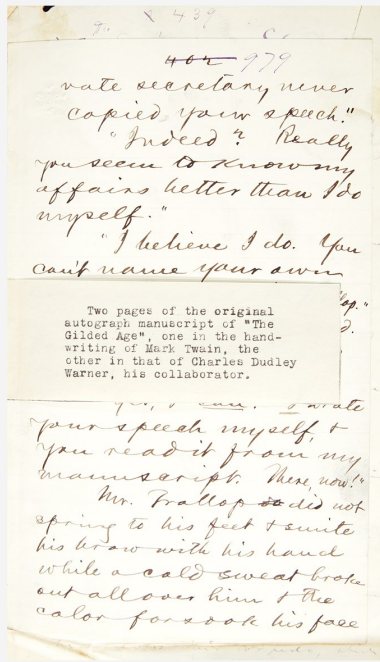 x 439
402 979
vate secretary never
copied your speech."
"Indeed? Really
you seem to know my
affairs better than I do
myself."
"I believe I do. You
can't name your own
lop."
d.
Two pages of the original
autograph manuscript of "The
Gilded Age", one in the hand-
writing of Mark Twain, the
other in that of Charles Dudley
Warner, his collaborator.
wrote
your speech myself, &
you read it from my
manuscript. There, now!"
Mr. Trollop so did not
spring to his feet & smite
his brow with his hand
while a cold sweat broke
out all over him & the
color forsook his face